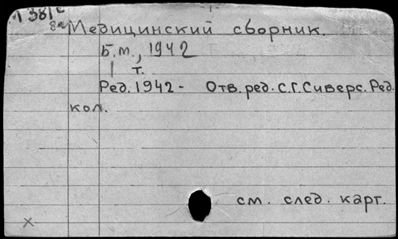 Медицинский сборник.
Б.м., 1942
т.
Ред. 1942- Отв. ред. С.Г. Сиверс. Ред.
кол.
см. след. карт.